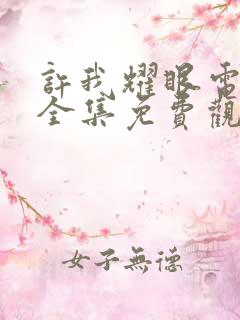 許我耀眼電
全集免費觀
女子無德